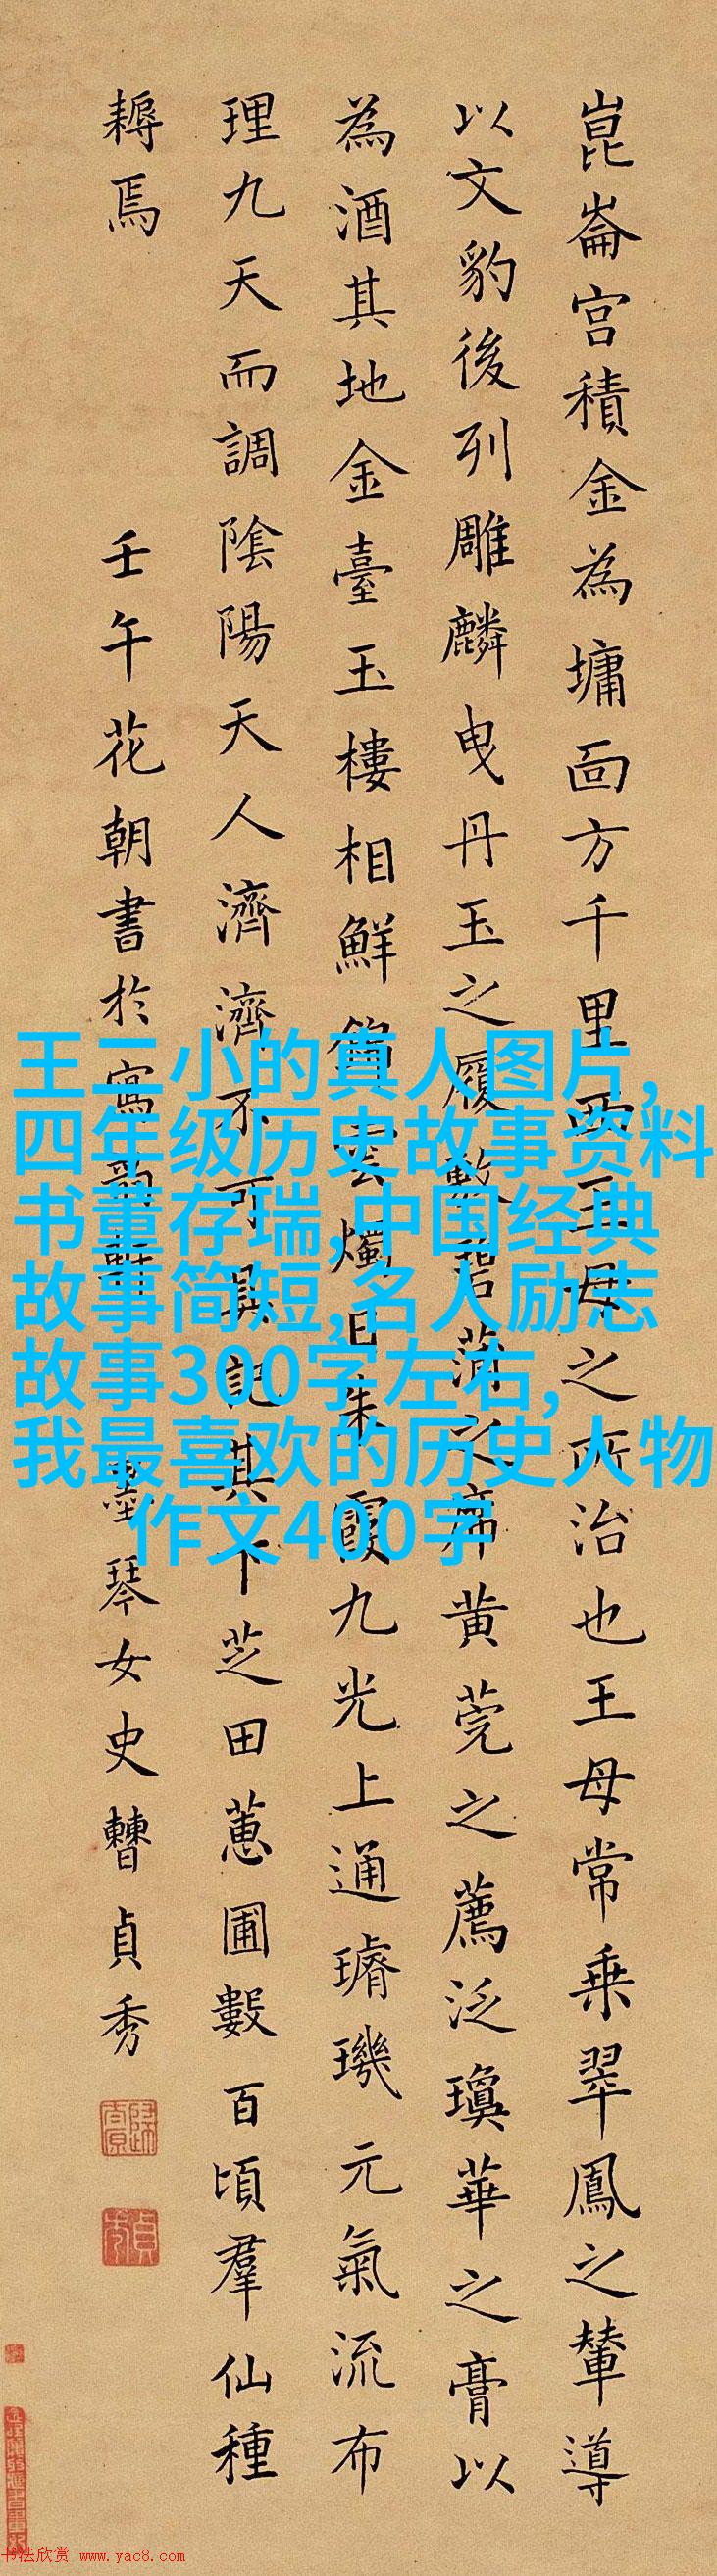 崑崙宮積金為墉面方千里西王母之所治也王母常乘翠鳳之輦導
以文豹後列雕麟曳丹玉之履敷碧蒲之席黃莞之薦泛瓊華之膏以
為酒其地金臺玉樓相鮮雲燭日朱霞九光上通璿璣元氣流布
理九天而調陰陽天人濟濟不可具記其下芝田蕙圃數百頃羣仙種
耨焉
壬午花朝書於寫韻軒 墨琴女史曹貞秀
王二小的真人图片,
四年级历史故事资料
书董存瑞,中国经典
故事简短,名人励志
故事300字左右,
我最喜欢的历史人物
作文400字
书法欣赏 www.yac8.com